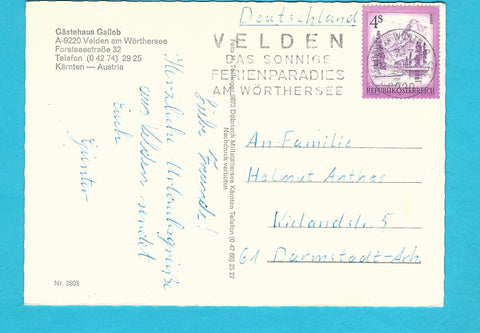 Gästehaus Galleb
A-9220 Velden am Wörthersee
Forstseestraße 32
Telefon (0 42 74) 29 25
Kärnten — Austria
Deutschland
VELDEN
DAS SONNIGE
FERIENPARADIES
AM WÖRTHERSEE
4 S
REPUBLIK ÖSTERREICH
Liebe Freunde!
Herzliche Urlaubsgrüße
aus Velden sendet
Euch
Günter
9873 Döbriach Millstättersee Kärnten Telefon (0 42 66) 25 27
Nachdruck verboten
An Familie
Helmut Anthes
Wielandstr. 5
61 Darmstadt-Arh.
Nr. 3803